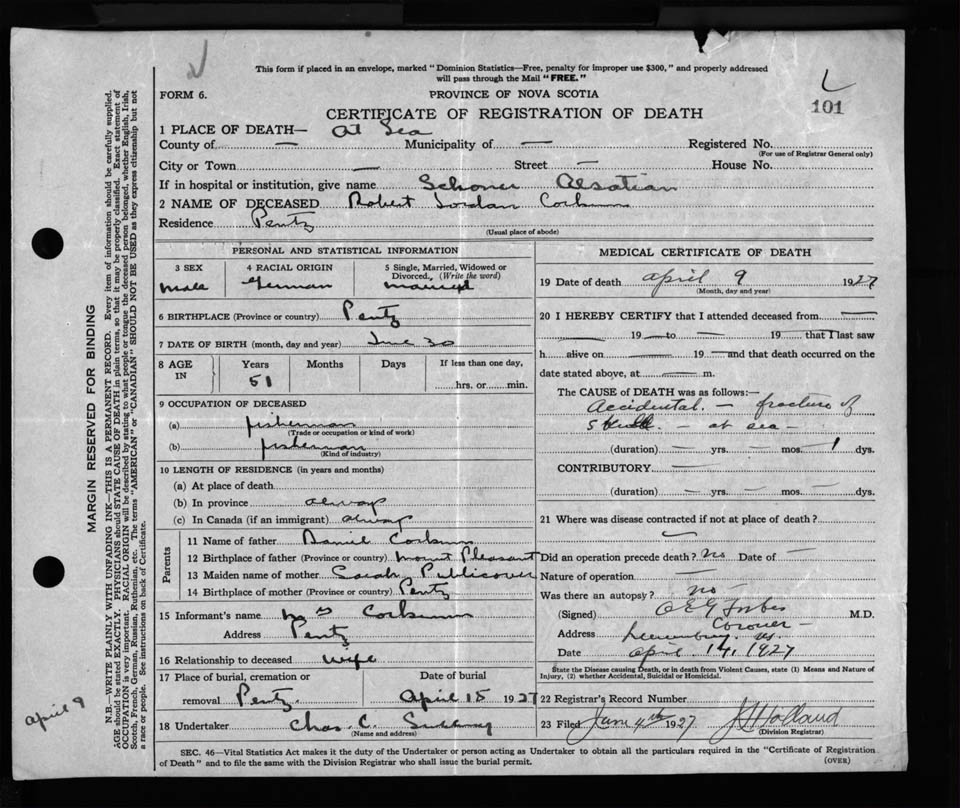 This form if placed in an envelope, marked "Dominion Statistics—Free, penalty for improper use $300," and properly addressed
will pass through the Mail "FREE."
FORM 6. PROVINCE OF NOVA SCOTIA
101
CERTIFICATE OF REGISTRATION OF DEATH
1 PLACE OF DEATH— At Sea
County of — Municipality of — Registered No.
(For use of Registrar General only)
City or Town — Street — House No.
If in hospital or institution, give name Schoner Alsatian
2 NAME OF DECEASED Robert Jordan Corkum
Residence Pentz
(Usual place of abode)
PERSONAL AND STATISTICAL INFORMATION
3 SEX 4 RACIAL ORIGIN 5 Single, Married, Widowed or
Divorced. (Write the word)
Male German married
6 BIRTHPLACE (Province or country) Pentz
7 DATE OF BIRTH (month, day and year) June 30
8 AGE IN Years Months Days If less than one day,
51 hrs. or min.
9 OCCUPATION OF DECEASED
(a) fisherman
(Trade or occupation or kind of work)
(b) fisherman
(Kind of industry)
10 LENGTH OF RESIDENCE (in years and months)
(a) At place of death
(b) In province always
(c) In Canada (if an immigrant) always
Parents
11 Name of father Daniel Corkum
12 Birthplace of father (Province or country) Mount Pleasant
13 Maiden name of mother Sarah Publicover
14 Birthplace of mother (Province or country) Pentz
15 Informant's name Mrs Corkum
Address Pentz
16 Relationship to deceased wife
17 Place of burial, cremation or Date of burial
removal Pentz April 18 1927
18 Undertaker Chas. C.
(Name and address)
MEDICAL CERTIFICATE OF DEATH
19 Date of death April 9 1927
(Month, day and year)
20 I HEREBY CERTIFY that I attended deceased from —
— 19 — to — 19 — that I last saw
h alive on — 19 — and that death occurred on the
date stated above, at — m.
The CAUSE of DEATH was as follows:—
Accidental. — fracture of
skull. — at sea —
(duration) — yrs. — mos. 1 dys.
CONTRIBUTORY —
(duration) — yrs. — mos. — dys.
21 Where was disease contracted if not at place of death?
—
Did an operation precede death? No Date of —
Nature of operation —
Was there an autopsy? No
(Signed) Forbes M.D.
Coroner —
Address Lunenburg. NS.
Date April 14, 1927
State the Disease causing Death, or in death from Violent Causes, state (1) Means and Nature of
Injury, (2) whether Accidental, Suicidal or Homicidal.
22 Registrar's Record Number
23 Filed June 4th 1927 Holland
(Division Registrar)
SEC. 46—Vital Statistics Act makes it the duty of the Undertaker or person acting as Undertaker to obtain all the particulars required in the "Certificate of Registration
of Death" and to file the same with the Division Registrar who shall issue the burial permit. (OVER)
MARGIN RESERVED FOR BINDING
N.B.—WRITE PLAINLY WITH UNFADING INK—THIS IS A PERMANENT RECORD. Every item of information should be carefully supplied.
AGE should be stated EXACTLY. PHYSICIANS should STATE CAUSE OF DEATH in plain terms, so that it may be properly classified. Exact statement of
OCCUPATION is very important. RACIAL ORIGIN will be described by stating to what people or tongue the deceased person belonged, whether English, Irish,
Scotch, French, German, Russian, Ruthenian, etc. The terms "AMERICAN" or "CANADIAN" SHOULD NOT BE USED as they express citizenship but not
a race or people. See instructions on back of Certificate.
April 9